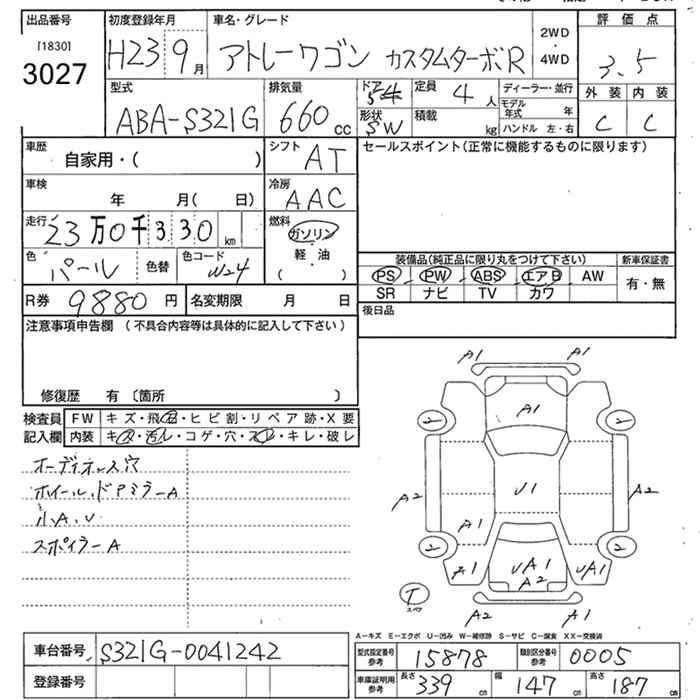 出品番号 初度登録年月 車名・グレード 2WD ・ 4WD 評価点
[1830]
3027 H23 9月 アトレーワゴン カスタムターボR 3.5
外装 内装
C C
型式 排気量 ドア 定員 ディーラー・並行
ABA-S321G 660cc 5 4人 モデル年式 年
形状 SW 積載 kg ハンドル 左・右
車歴 自家用・( ) シフト AT セールスポイント(正常に機能するものに限ります)
車検 年 月( 日) 冷房 AAC
走行 23万0千330km 燃料 ガソリン
軽・油
( )
色 パール 色替 色コード W24
装備品(純正品に限り丸をつけて下さい) 新車保証書
PS PW ABS エアB AW 有・無
SR ナビ TV カワ
R券 9880円 名変期限 月 日
後日品
注意事項申告欄 (不具合内容等は具体的に記入して下さい)
修復歴 有 〔箇所 〕
検査員 FW キズ・飛石・ヒビ割・リペア跡・X要
記入欄 内装 キズ・汚レ・コゲ・穴・スレ・キレ・破レ
オーディオレス穴
ホイール.ドアミラーA
小A.U
スポイラーA
A1 A1
A1
2 2
A2 U1 A2
A1
2 2
A1 UA1 UA1
A2
T
スペア
A2 A1
A-キズ E-エクボ U-凹み W-補修跡 S-サビ C-腐食 XX-交換済
車台番号 S321G-0041242
登録番号
型式指定番号 参考 15878 類別区分番号 参考 0005
車庫証明用 参考 長さ 339cm 幅 147cm 高さ 187cm